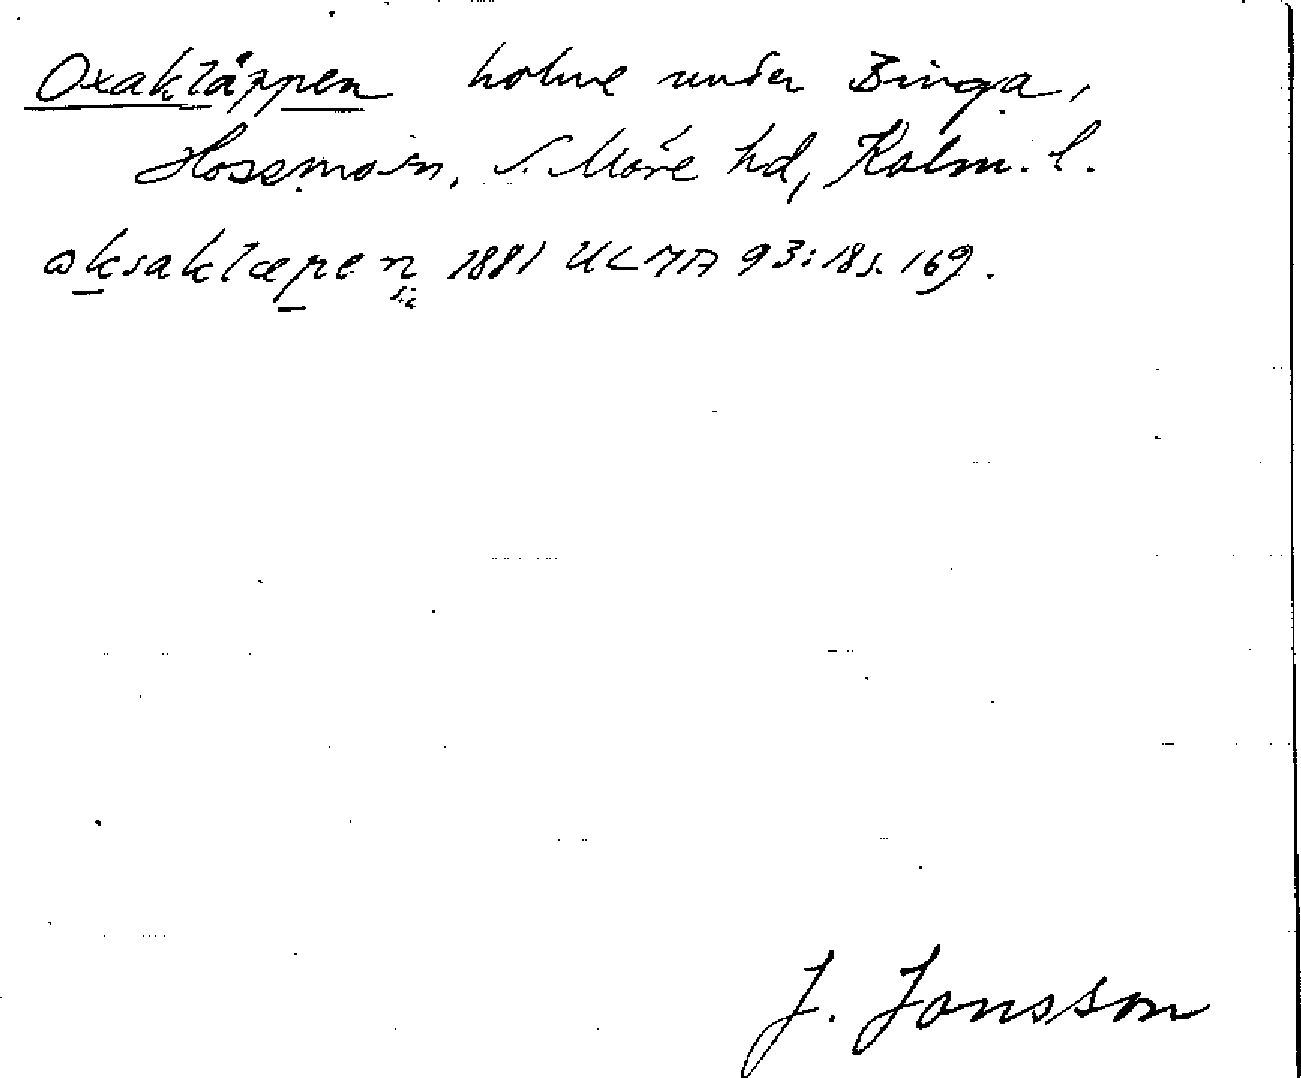 Oxakläppen holme under Binga,
Hossmo sn, S. Möre hd, Kalm. l.
oksaklæpen 1881 ULMA 93:18 s. 169.
sic
J. Jonsson